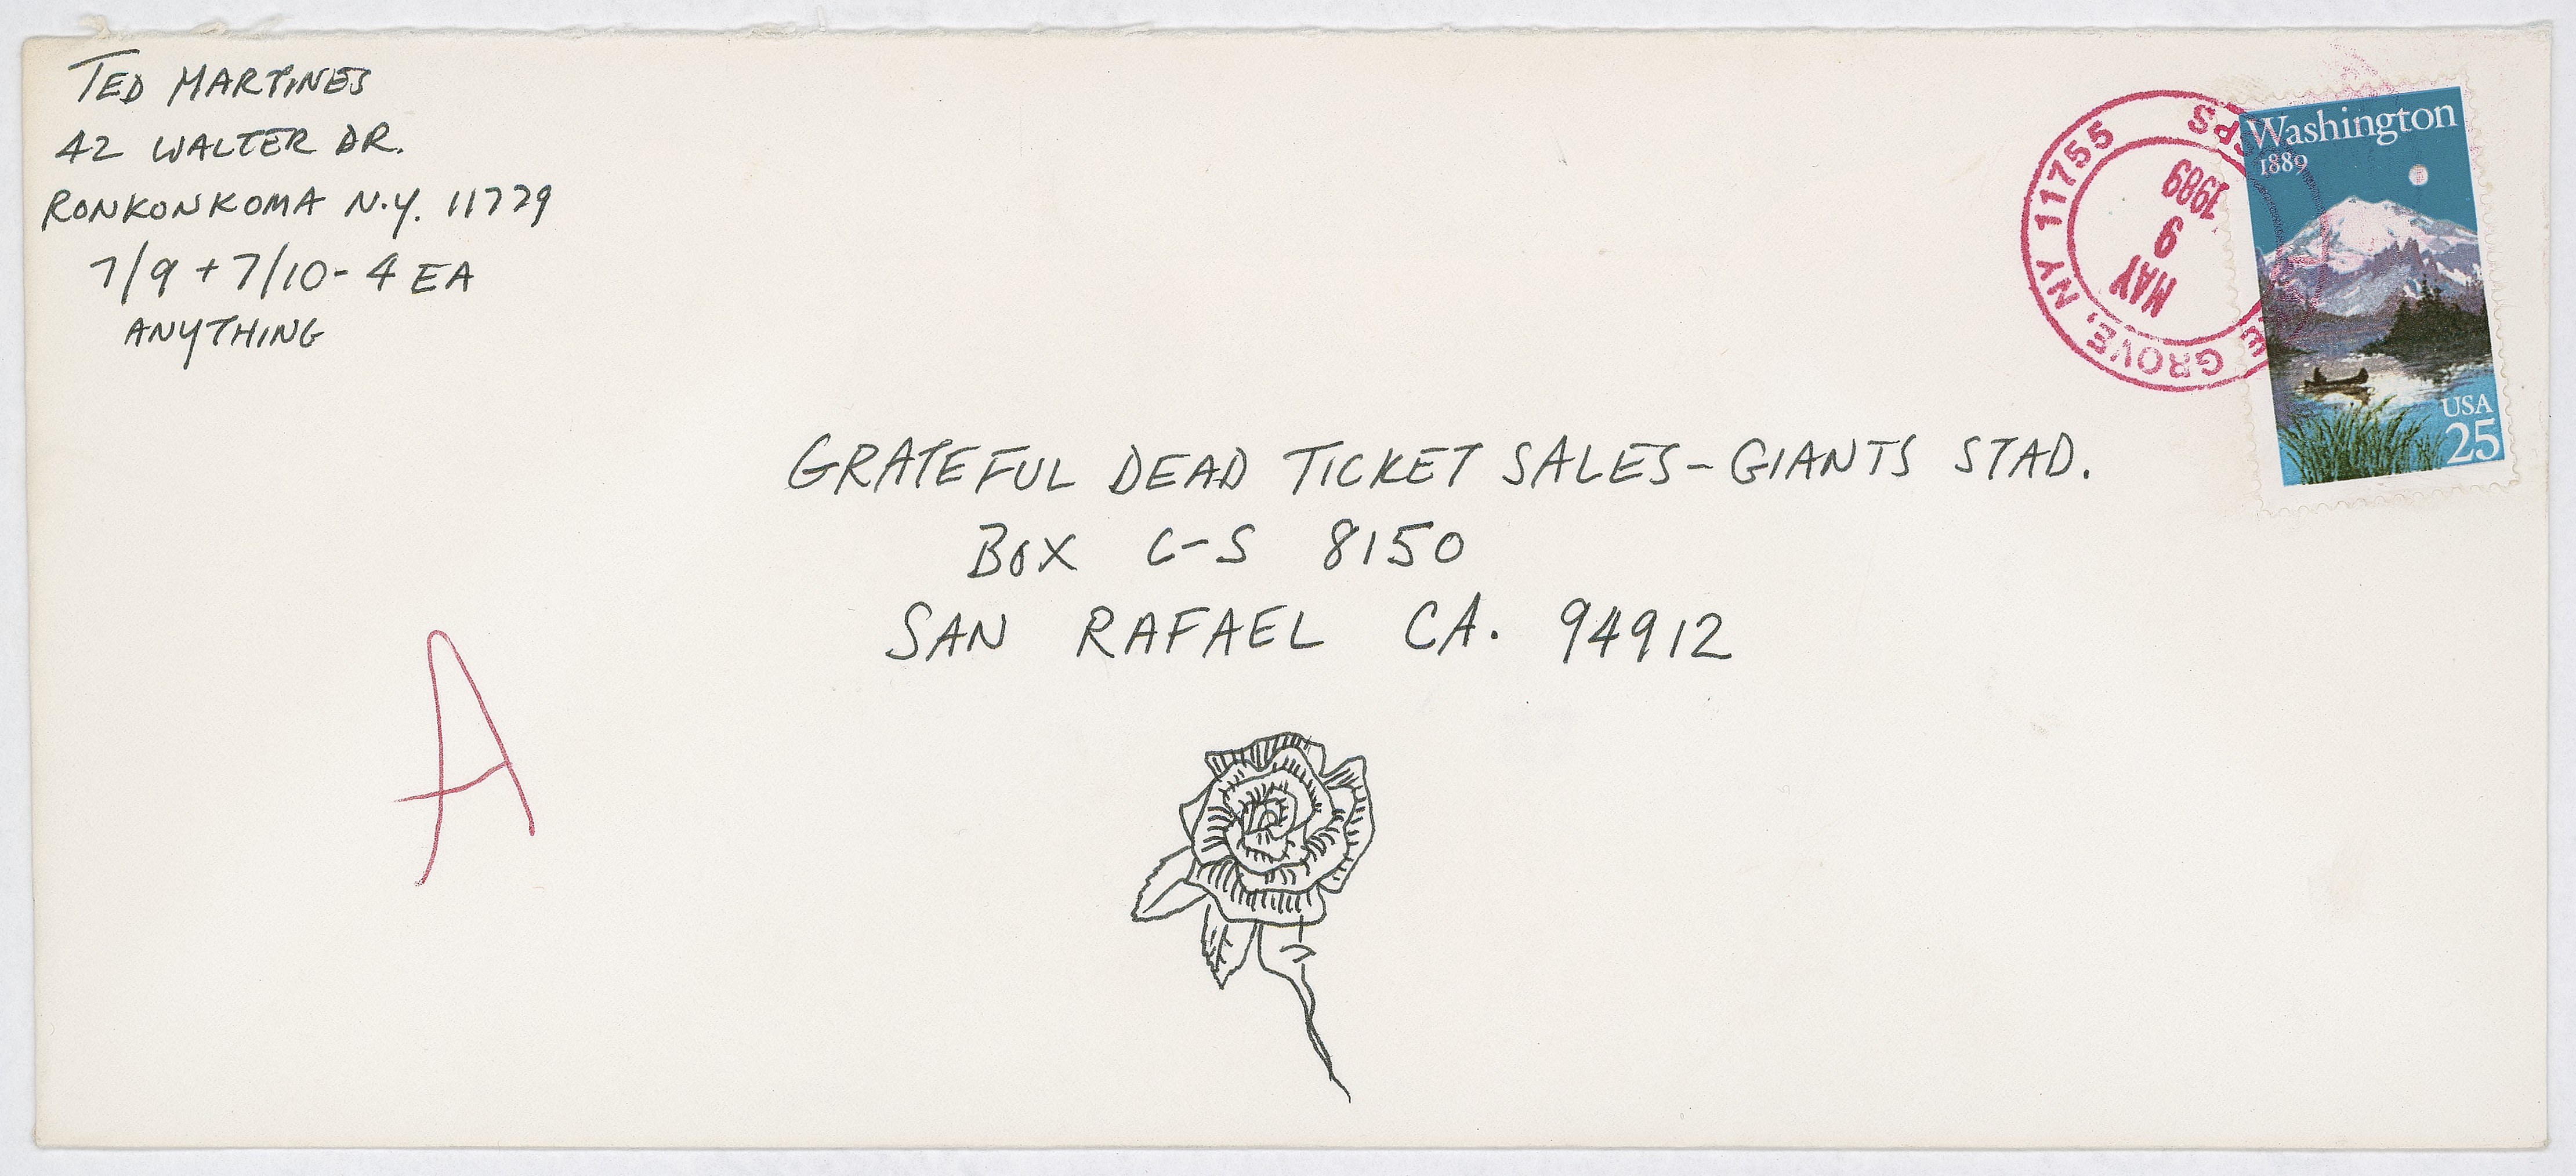 TED MARTINES
42 WALTER DR.
RONKONKOMA N.Y. 11779
7/9 + 7/10 - 4 EA
ANYTHING
GROVE, NY 11755 USPS
MAY
9
1989
Washington
1889
USA
25
GRATEFUL DEAD TICKET SALES - GIANTS STAD.
BOX C-S 8150
SAN RAFAEL CA. 94912
A